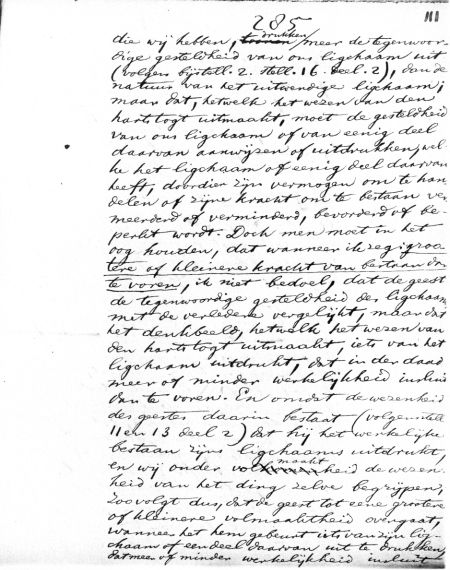 285
181
die wij hebben, drukken meer de tegenwoor-
dige gesteldheid van ons ligchaam uit
(volgens bijstell. 2. stell. 16. deel. 2), dan de
natuur van het uitwendige ligchaam;
maar dat, hetwelk het wezen van den
hartstogt uitmaakt, moet de gesteldheid
van ons ligchaam of van eenig deel
daarvan aanwijzen of uitdrukken, wel-
ke het ligchaam of eenig deel daarvan
heeft, doordien zijn vermogen om te han
delen of zijne kracht om te bestaan ver
meerderd of verminderd, bevorderd of be-
perkt wordt. Doch men moet in het
oog houden, dat wanneer ik zeg: groo
tere of kleinere kracht van bestaan dan
te voren, ik niet bedoel, dat de geest
de tegenwoordige gesteldheid des ligchaams
met de verledene vergelijkt, maar dat
het denkbeeld, hetwelk het wezen van
den hartstogt uitmaakt, iets van het
ligchaam uitdrukt, dat in der daad
meer of minder werkelijkheid insluit
dan te voren. En omdat de wezenheid
des geestes daarin bestaat (volgens stell
11 en 13 deel 2) dat hij het werkelijke
bestaan zijns ligchaams uitdrukt,
en wij onder volmaaktheid de wezen-
heid van het ding zelve begrijpen,
zoo volgt dus, dat de geest tot eene grootere
of kleinere volmaaktheid overgaat,
wanneer het hem gebeurt iets van zijn lig-
chaam of een deel daarvan uit te drukken,
dat meer of minder werkelijkheid insluit